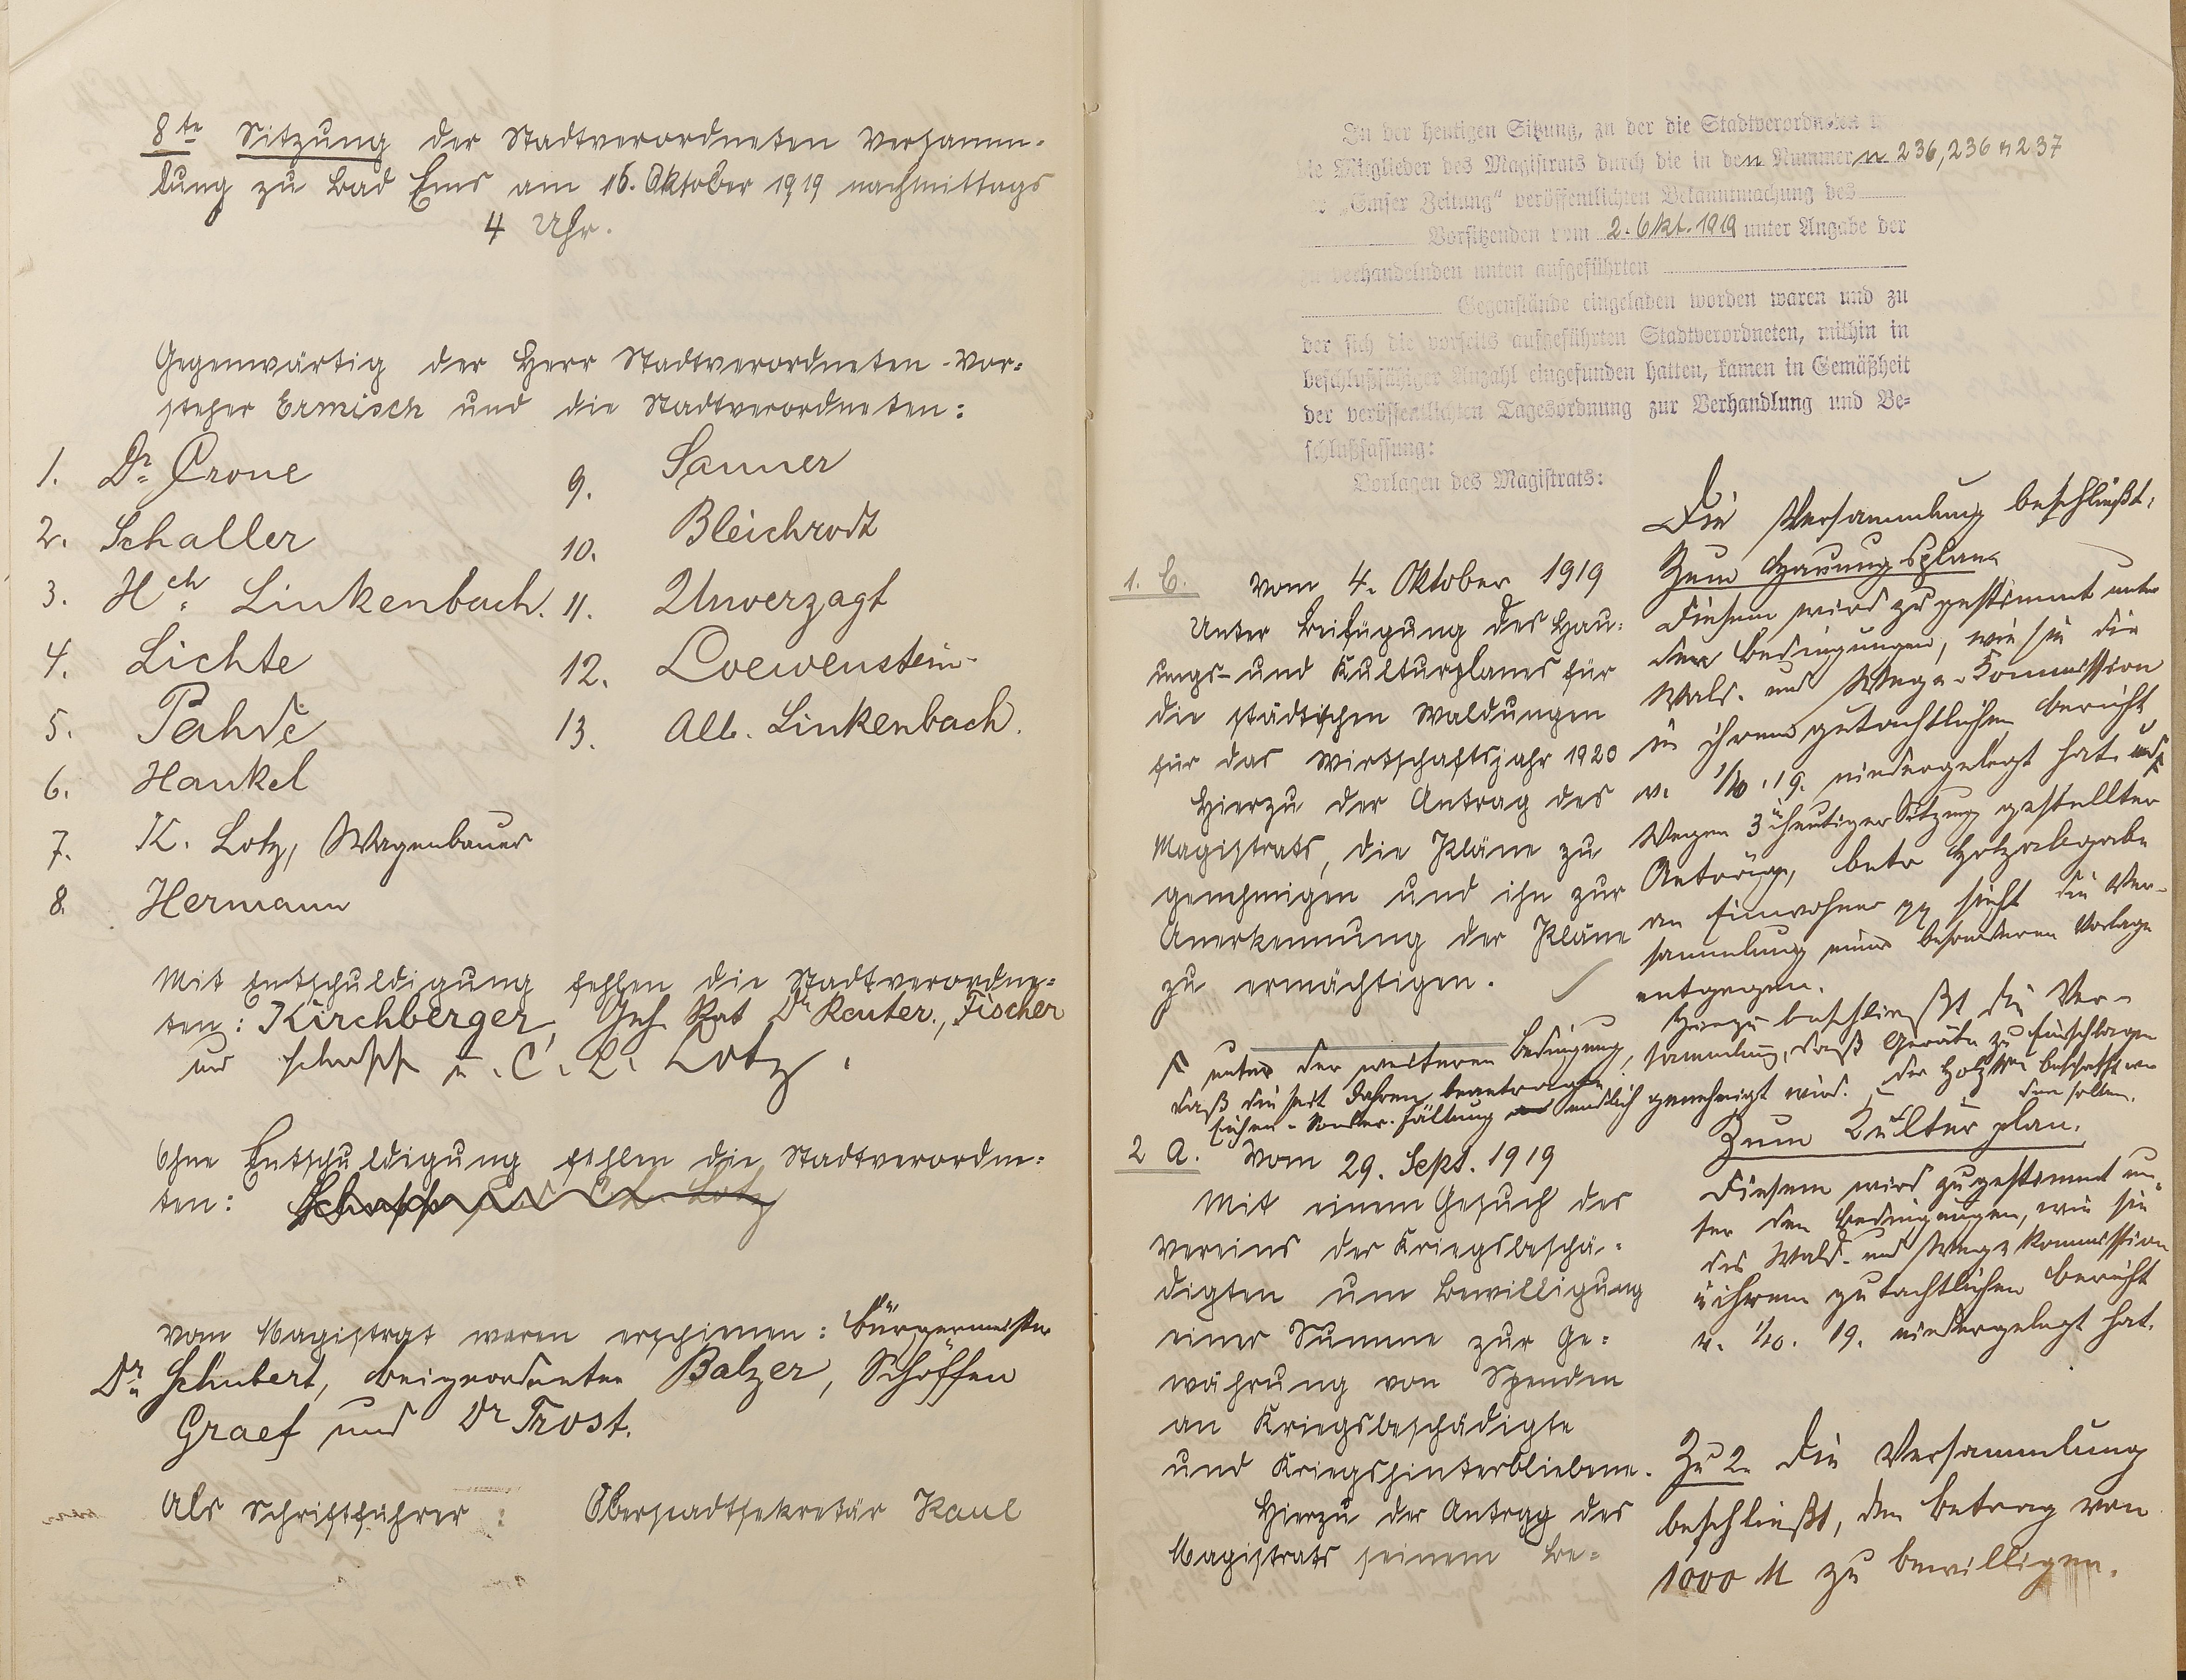 8te Sitzung der Stadtverordneten Versamm-
lung zu Bad Ems am 16. Oktober 1919 nachmittags
4 Uhr.
Gegenwärtig der Herr Stadtverordneten-Vor-
steher Ermisch und die Stadtverordneten:
1. Dr. Crone
2. Schaller
3. Hch. Linkenbach.
4. Lichte
5. Pahde
6. Hankel
7. K. Lotz, Wagenbauer
8. Hermann
9. Sanner
10. Bleichrodt
11. Unverzagt
12. Loewenstein
13. Alb. Linkenbach.
Mit Entschuldigung fehlen die Stadtverordne-
ten: Kirchberger, Geh. Rat Dr Reuter, Fischer
und Schupp u. C. L. Lotz.
Ohne Entschuldigung fehlen die Stadtverordne-
ten: Schupp und C. L. Lotz
Vom Magistrat waren erschienen: Bürgermeister
Dr. Schubert, Beigeordneter Balzer, Schöffen
Graef und Dr Trost.
Als Schriftführer: Oberstadtsekretär Kaul
In der heutigen Sitzung, zu der die Stadtverordneten
die Mitglieder des Magistrats durch die in den Nummern 236, 236 u 237
der „Emser Zeitung“ veröffentlichten Bekanntmachung des
Vorsitzenden vom 2. Okt. 1919 unter Angabe der
zu verhandelnden unten aufgeführten
Gegenstände eingeladen worden waren und zu
der sich die vorseits aufgeführten Stadtverordneten, mithin in
beschlußfähiger Anzahl eingefunden hatten, kamen in Gemäßheit
der veröffentlichten Tagesordnung zur Verhandlung und Be-
schlußfassung:
Vorlagen des Magistrats:
1. C. Vom 4. Oktober 1919
Unter Beifügung des Hau-
ungs- und Kulturplanes für
die städtischen Waldungen
für das Wirtschaftsjahr 1920
Hierzu der Antrag des
Magistrats, die Pläne zu
genehmigen und ihn zur
Anerkennung der Pläne
zu ermächtigen.
Die Versammlung beschließt:
Zum Hauungsplan.
Diesem wird zugestimmt unter
den Bedingungen, wie sie die
Wald- und Wege-Kommission
in ihrem gutachtlichen Bericht
v. 1/10. 19. niedergelegt hat und
Wegen 3 in heutiger Sitzung gestellter
Anträge, betr Holzabgabe
an Einwohner pp sieht die Ver-
sammlung einer besonderen Vorlage
entgegen.
Hierzu beschließt die Ver-
sammlung, daß Geräte zu Einschlagen
der Holz beschafft wer
den sollen.
unter der weiteren Bedingung,
daß die seit Jahren beantragte
Eichen-Sonder-Fällung endlich genehmigt wird.
Zum Kulturplan.
Diesem wird zugestimmt un-
ter den Bedingungen, wie sie
die Wald- und Wege Kommission
in ihrem gutachtlichen Bericht
v. 1/10. 19. niedergelegt hat.
2 A. Vom 29. Sept. 1919
Mit einem Gesuch des
Vereins der Kriegsbeschä-
digten um Bewilligung
einer Summe zur Ge-
währung von Spenden
an Kriegsbeschädigte
und Kriegshinterbliebene.
Hierzu der Antrag des
Magistrats seinem Be-
Zu 2. Die Versammlung
beschließt, den Betrag von
1000 M zu bewilligen.